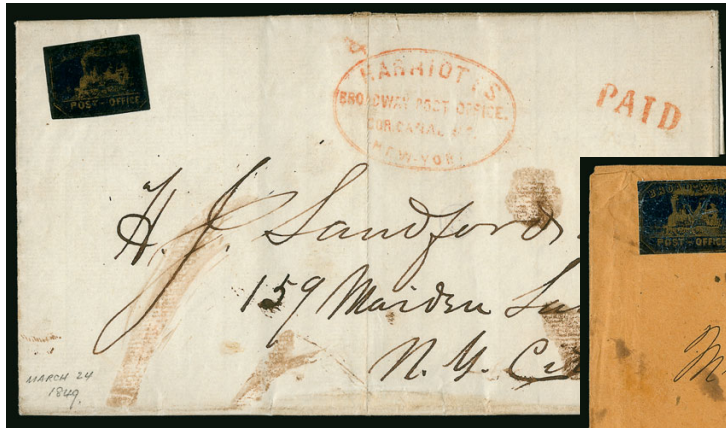 POST-OFFICE
HARRIOTT'S
BROADWAY POST OFFICE.
COR. CANAL ST.
NEW-YORK
PAID
H. J. Sandford
159 Maiden
N. Y.
MARCH 24
1849.
BROADWAY
POST-OFFICE